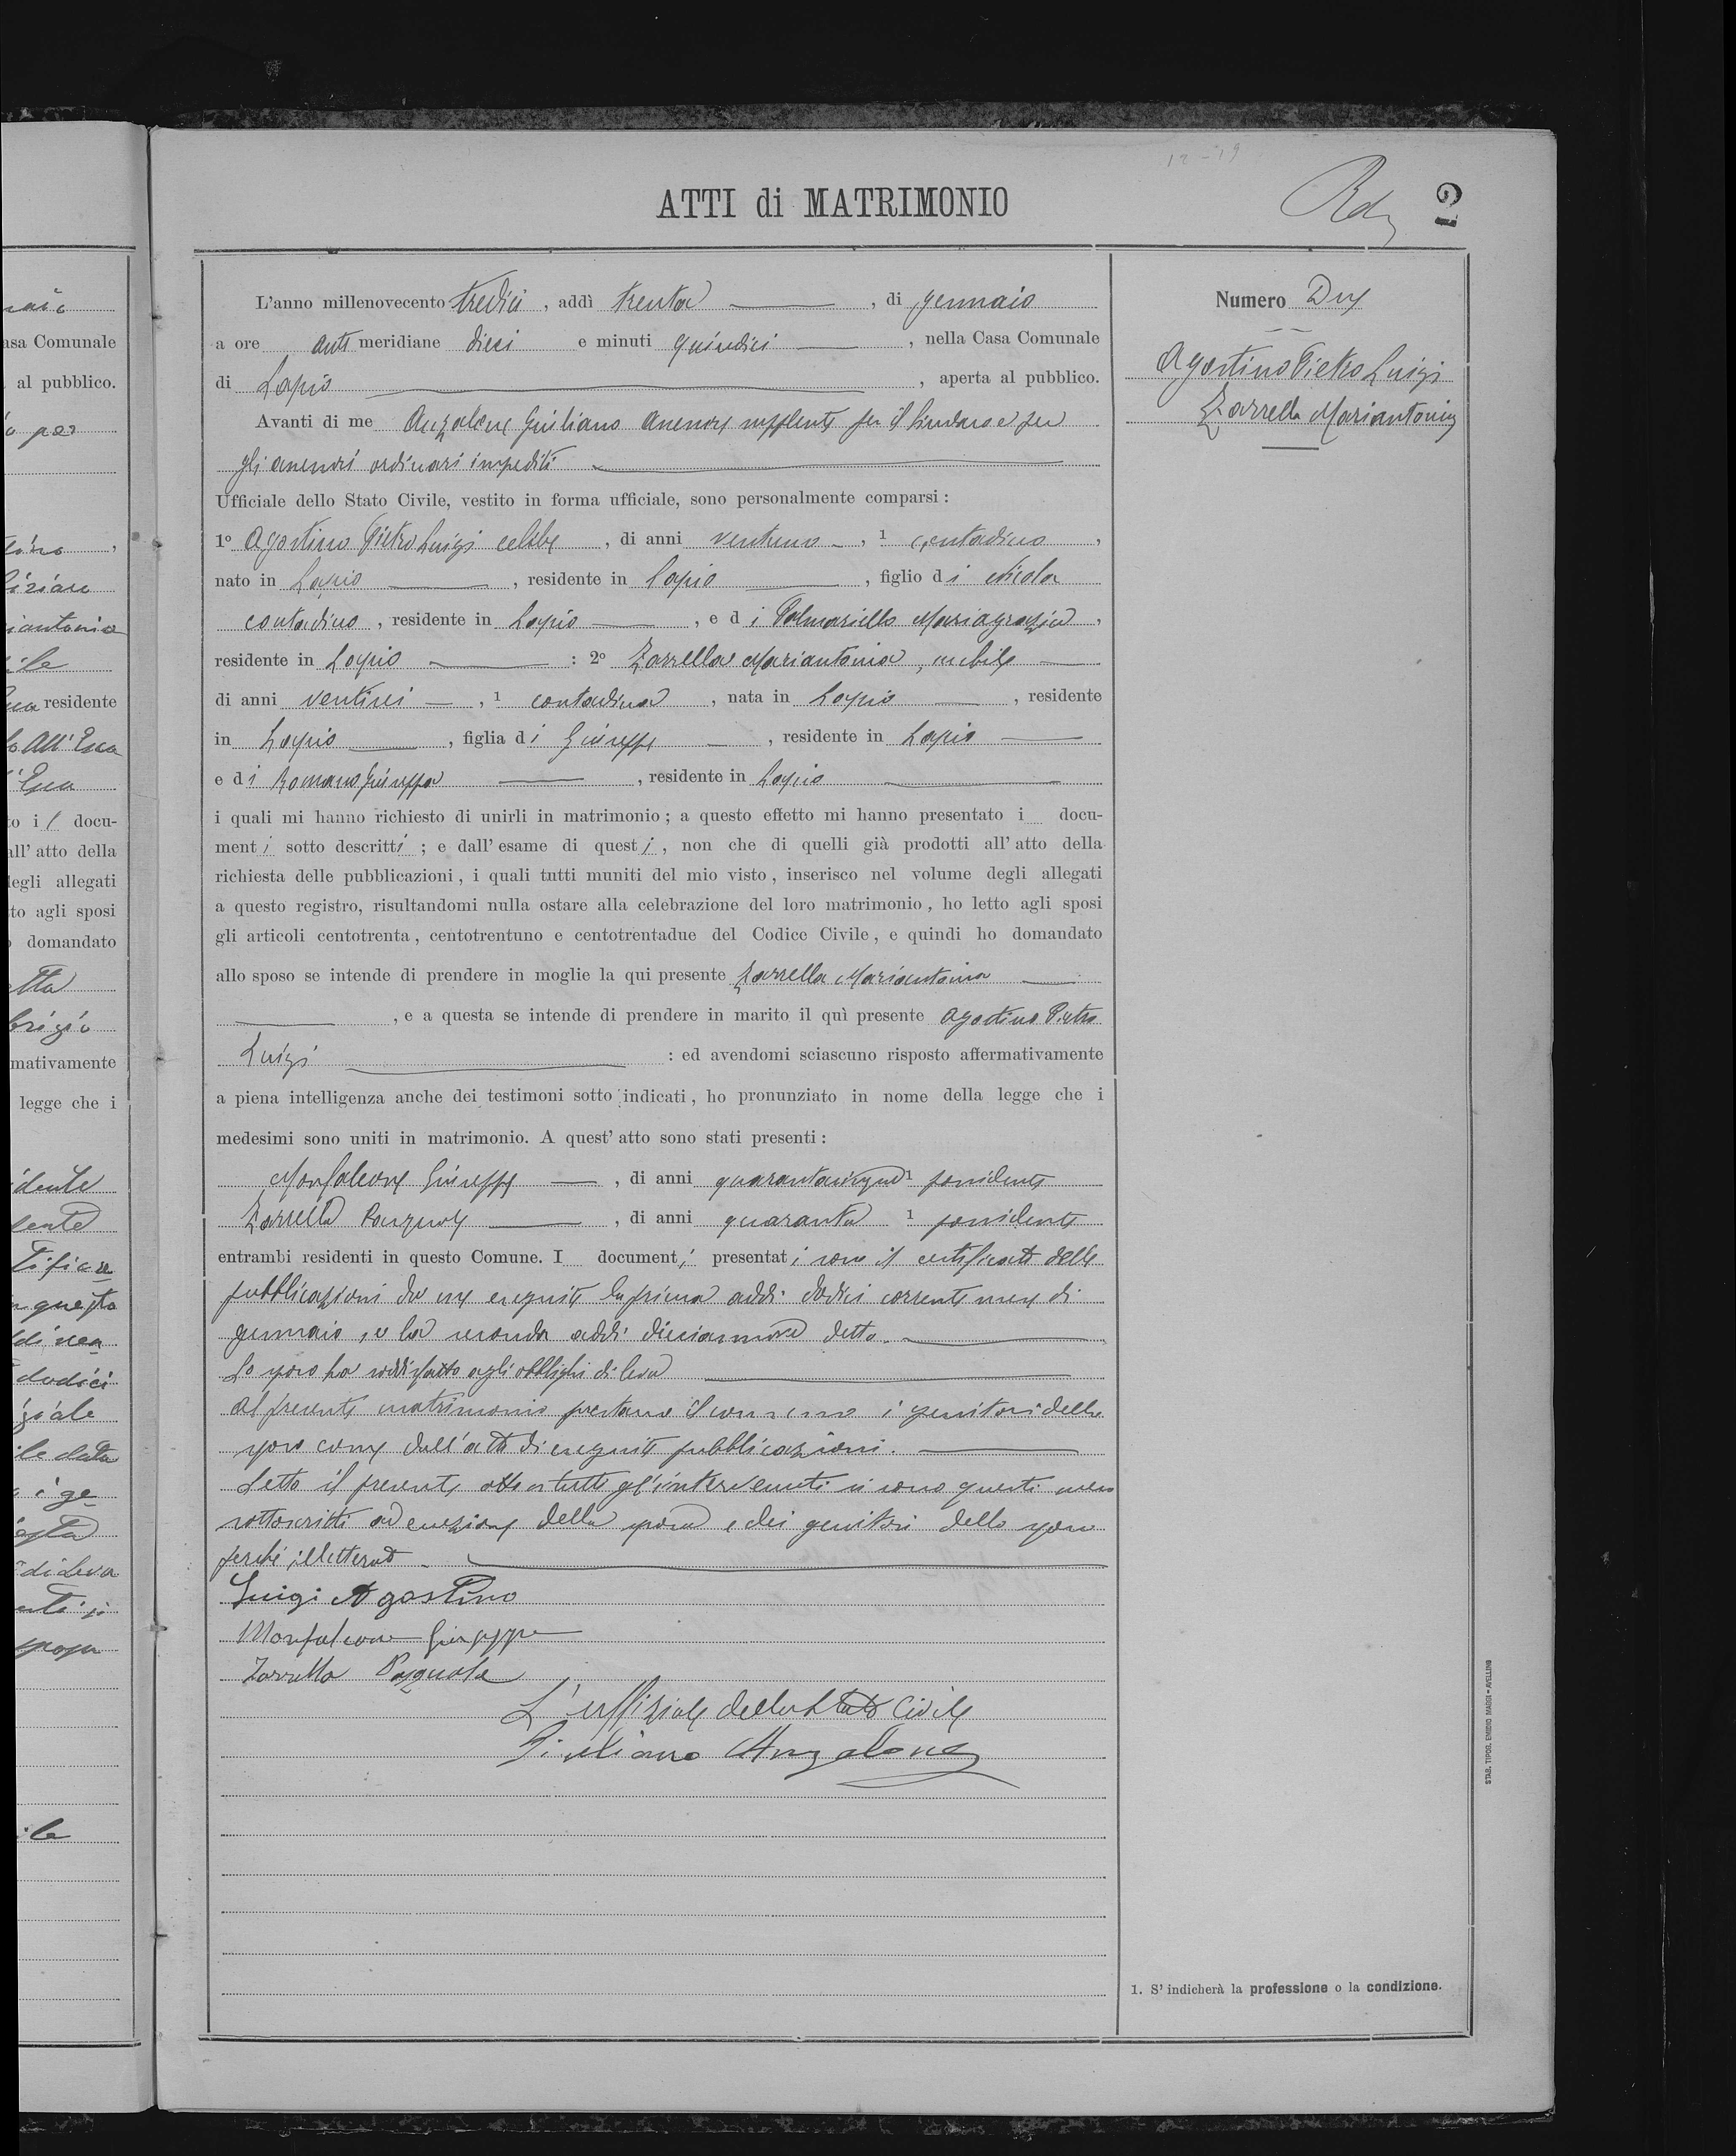 12-19
ATTI di MATRIMONIO
2
Numero Due
Agostino Pietro Luigi
Zarrella Mariantonia
L'anno millenovecento tredici, addì trenta, di gennaio
a ore anti meridiane dieci e minuti quindici, nella Casa Comunale
di Lapio, aperta al pubblico.
Avanti di me Anzalone Giuliano assessore supplente per il Sindaco e per
gli assessori ordinari impediti
Ufficiale dello Stato Civile, vestito in forma ufficiale, sono personalmente comparsi:
1º Agostino Pietro Luigi celibe, di anni ventuno, 1 contadino,
nato in Lapio, residente in Lapio, figlio di Nicola
contadino, residente in Lapio, e di Palmariello Mariagrazia,
residente in Lapio: 2º Zarrella Mariantonia, nubile
di anni ventisei, 1 contadina, nata in Lapio, residente
in Lapio, figlia di Giuseppe, residente in Lapio
e di Romano Giuseppa, residente in Lapio
i quali mi hanno richiesto di unirli in matrimonio; a questo effetto mi hanno presentato i docu-
menti sotto descritti; e dall'esame di questi, non che di quelli già prodotti all'atto della
richiesta delle pubblicazioni, i quali tutti muniti del mio visto, inserisco nel volume degli allegati
a questo registro, risultandomi nulla ostare alla celebrazione del loro matrimonio, ho letto agli sposi
gli articoli centotrenta, centotrentuno e centotrentadue del Codice Civile, e quindi ho domandato
allo sposo se intende di prendere in moglie la qui presente Zarrella Mariantonia
, e a questa se intende di prendere in marito il quì presente Agostino Pietro
Luigi: ed avendomi sciascuno risposto affermativamente
a piena intelligenza anche dei testimoni sotto indicati, ho pronunziato in nome della legge che i
medesimi sono uniti in matrimonio. A quest'atto sono stati presenti:
Monfalcone Giuseppe, di anni quarantacinque 1 possidente
Zarrella Pasquale, di anni quaranta 1 possidente
entrambi residenti in questo Comune. I documenti presentati sono il certificato delle
pubblicazioni da me eseguite la prima addì dodici corrente mese di
gennaio, e la seconda addì diciannove detto.
Lo sposo ha soddisfatto agli obblighi di leva
Al presente matrimonio prestano il consenso i genitori dello
sposo come dall'atto di eseguite pubblicazioni.
Letto il presente atto a tutti gl'intervenuti si sono questi meco
sottoscritti ad eccezione della sposa e dei genitori dello sposo
perché illetterati.
Luigi Agostino
Monfalcone Giuseppe
Zarrella Pasquale
L'uffiziale dello Stato Civile
Giuliano Anzalone
1. S'indicherà la professione o la condizione.
STAB. TIPOG. EMIDIO MAGGI - AVELLINO
asa Comunale
al pubblico.
residente
docu-
all'atto della
degli allegati
to agli sposi
domandato
mativamente
legge che i